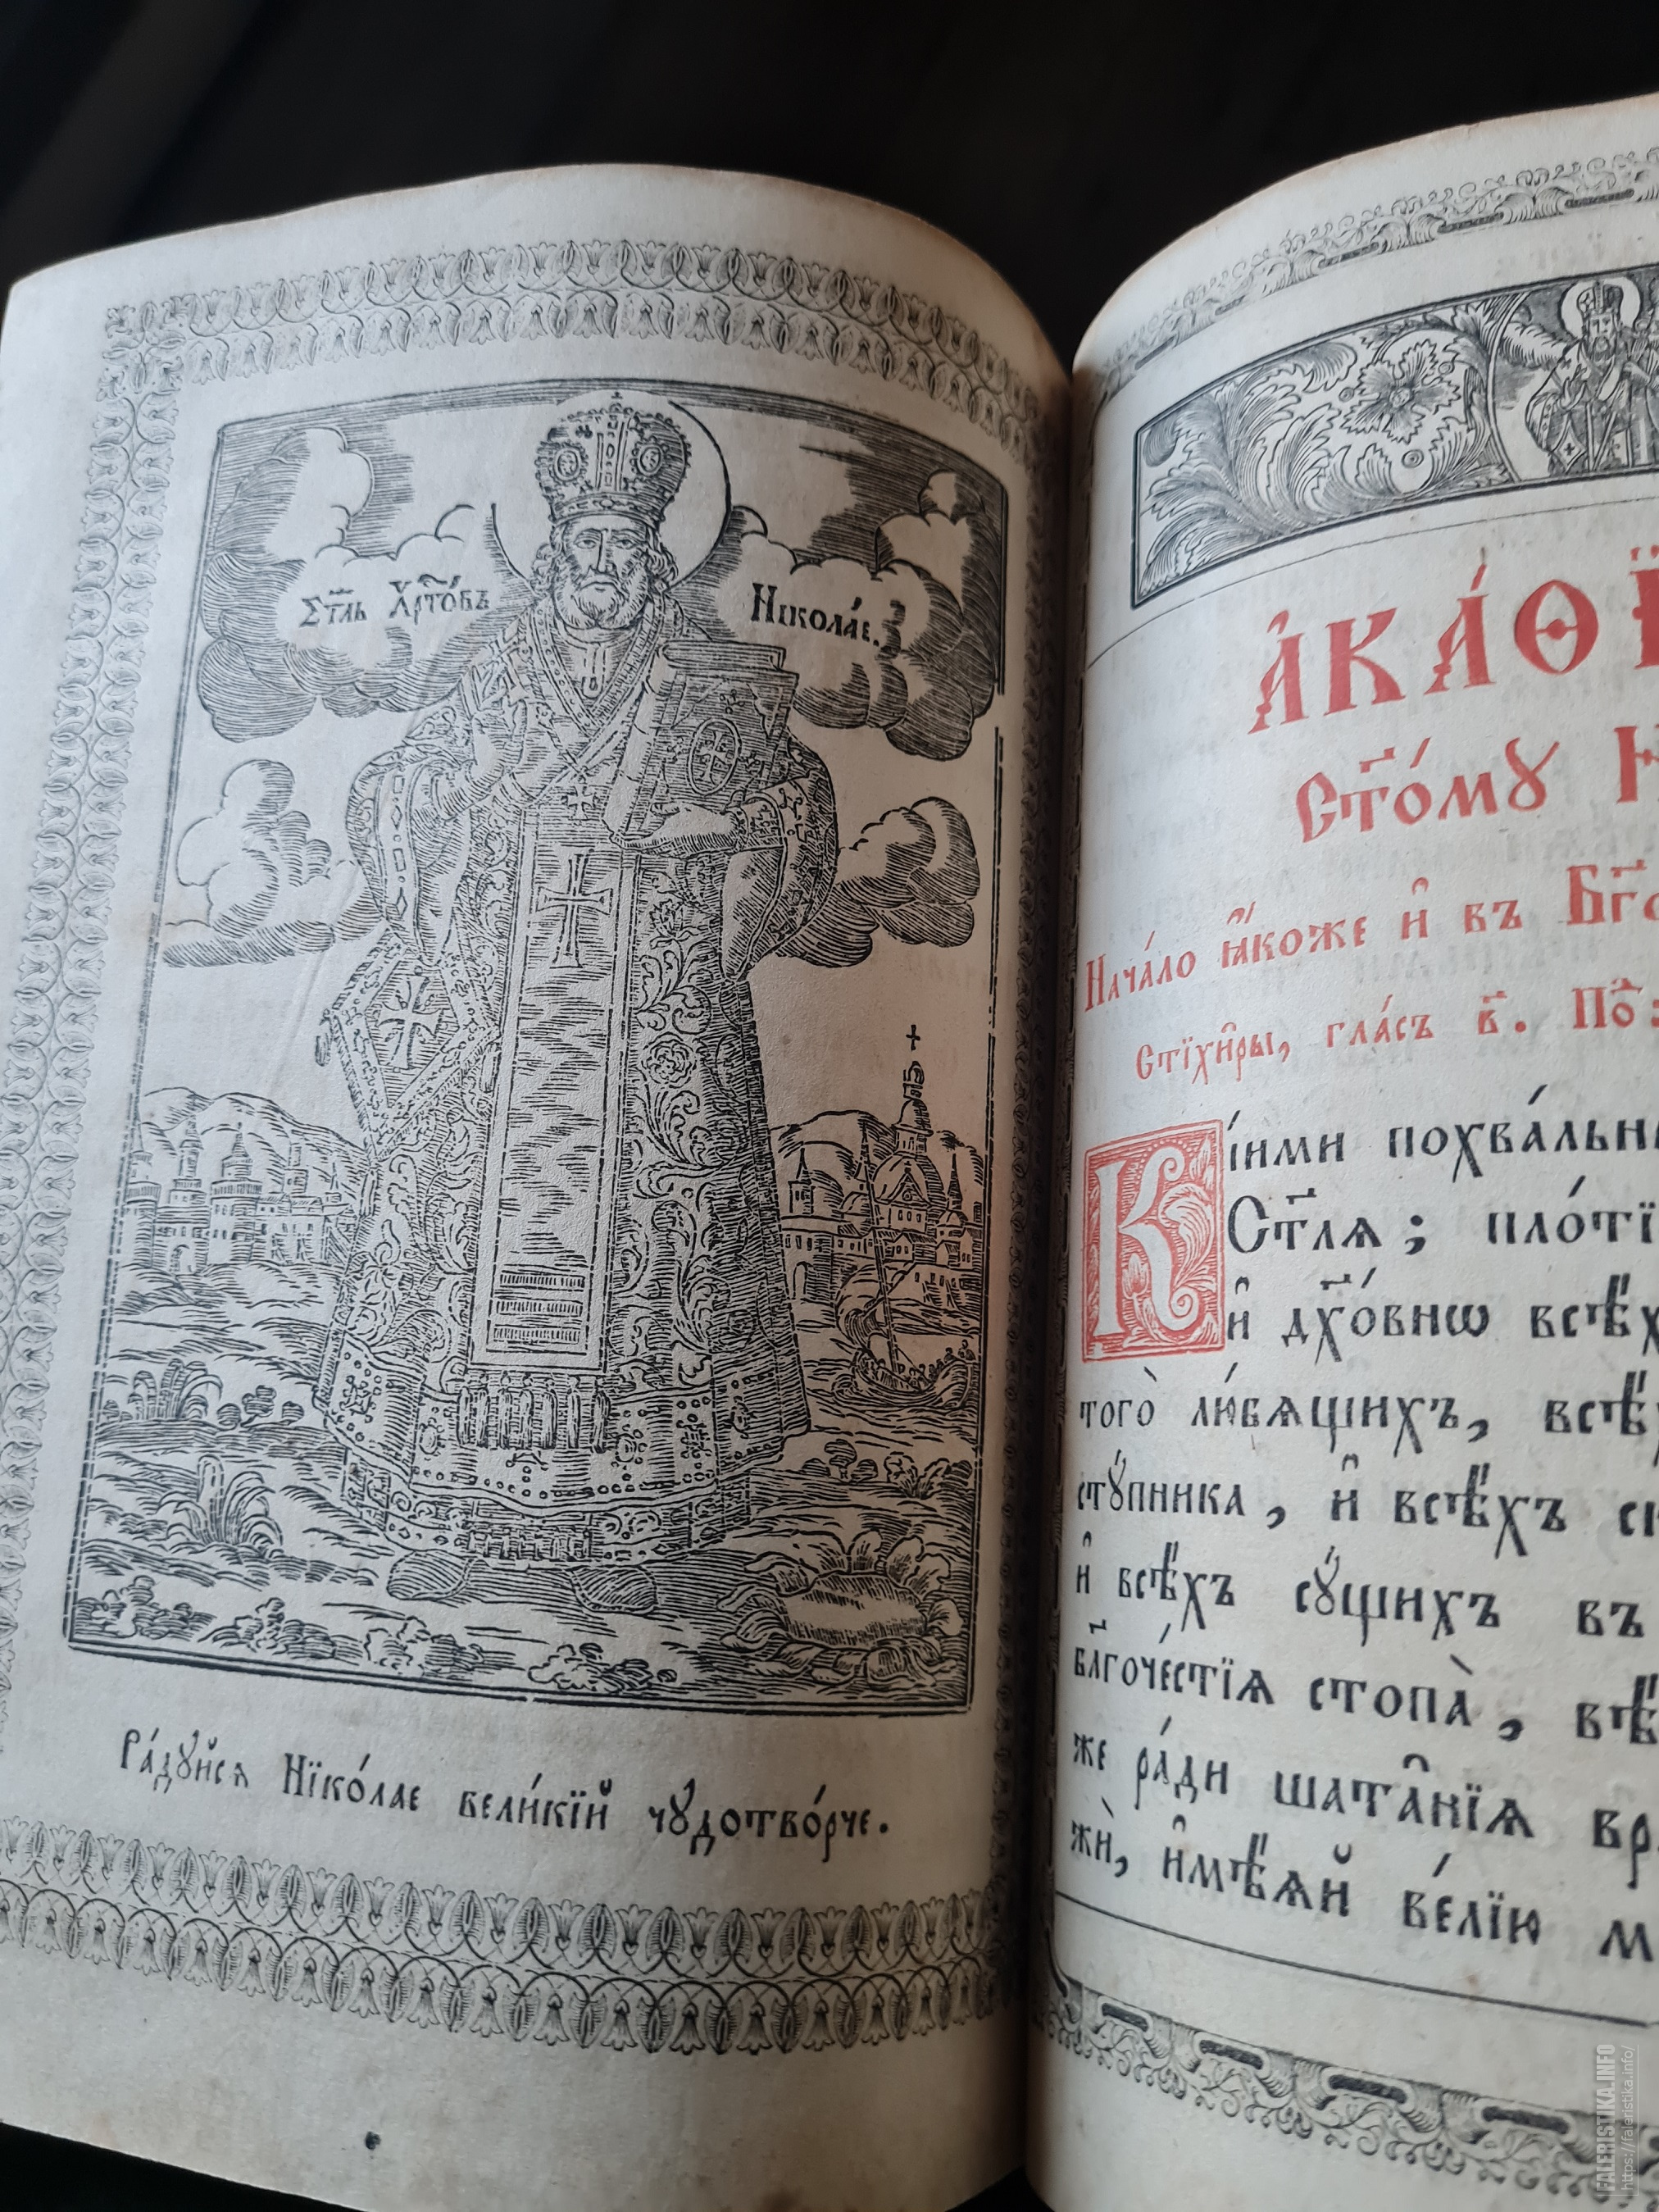 Ст҃ль Хрто́въ
Нікола́е.
Ра́дꙋйсѧ Нїко́лае вели́кїй чꙋдотво́рче.
а҆ка́ѳї
ст҃о́мꙋ
Нача́ло ꙗ҆́коже и҆ въ
стїхи̑ры, гла́съ в҃.
Кі́ими
Ст҃лѧ;
и҆ дх҃о́внѡ
того̀ лю́бѧщихъ,
стꙋ́пника, и҆ всѣ́хъ
и҆ всѣ́хъ сꙋ́щихъ въ
бл҃гоче́стїѧ стопа̀,
же ра́ди шата̑нїѧ
жѝ, и҆мѣ́ѧй ве́лїю
FALERISTIKA.INFO
https://faleristika.info/